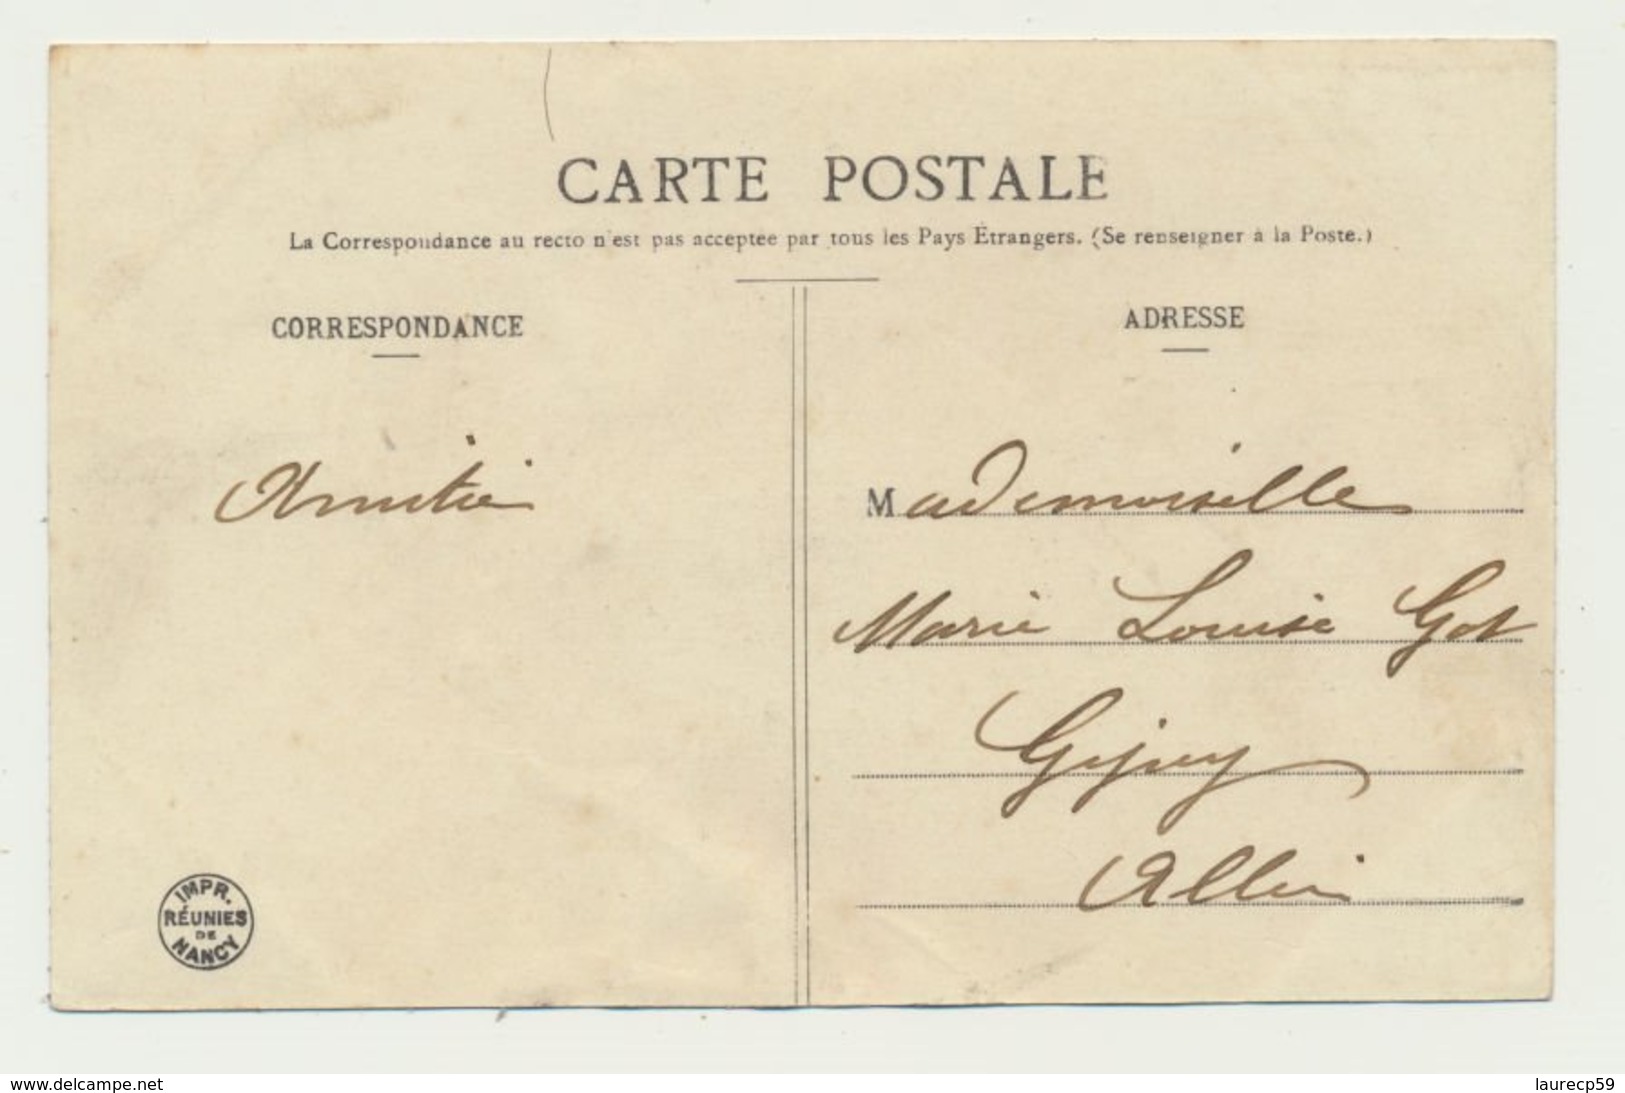 CARTE POSTALE
La Correspondance au recto n'est pas acceptée par tous les Pays Étrangers. (Se renseigner à la Poste.)
CORRESPONDANCE
Amitié
ADRESSE
Mademoiselle
Marie Louise Got
Gipcy
Allier
IMPR.
RÉUNIES
DE
NANCY
www.delcampe.net
laurecp59